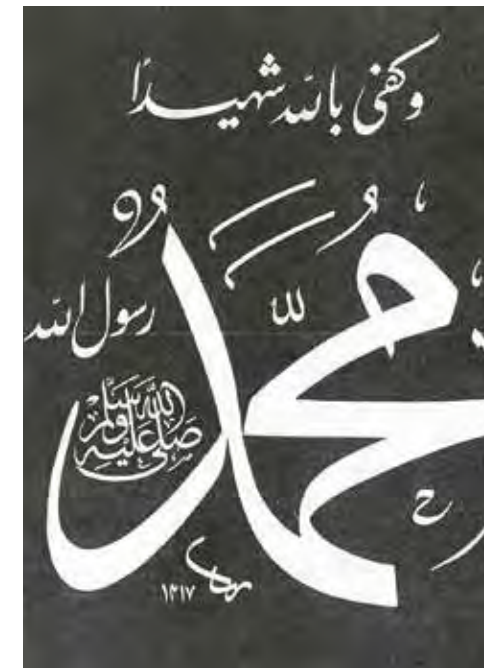 وكفى بالله شهيدًا
محمدٌ
رسول الله
صلى الله عليه وسلم
١٤١٧